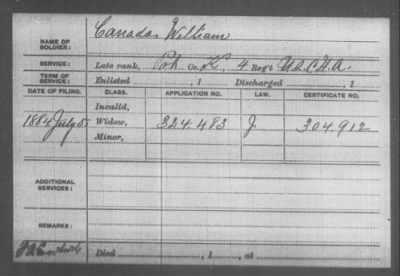 NAME OF SOLDIER: Canada, William
SERVICE: Late rank, Pvt. Co. K, 4 Reg't U.S.C.H.A.
TERM OF SERVICE: Enlisted , 1 Discharged , 1
DATE OF FILING. CLASS. APPLICATION NO. LAW. CERTIFICATE NO.
Invalid,
1884 July 5 Widow, 324.483 J. 304.912
Minor,
ADDITIONAL SERVICES:
REMARKS:
Died , 1 , at